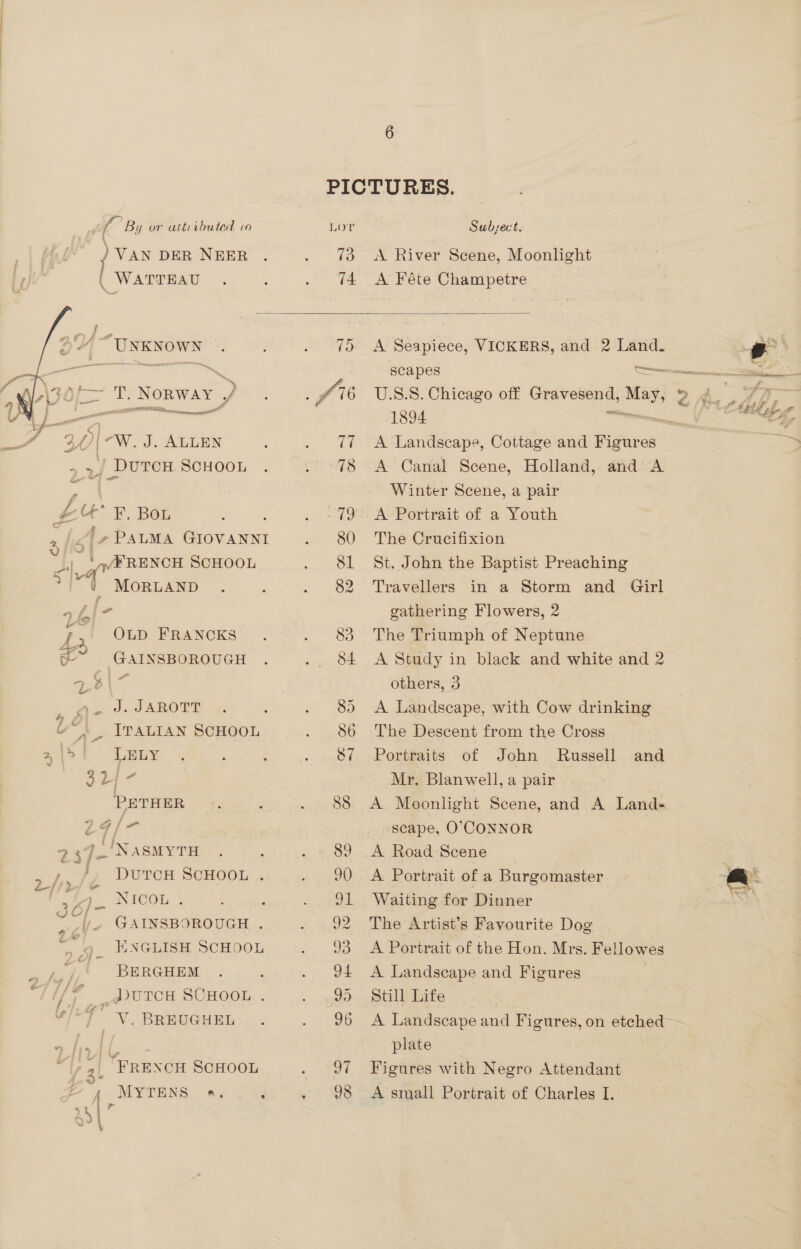 6
PICTURES.
By or attributed to LOT Subject.
VAN DER NEER . . 73 A River Scene, Moonlight
WATTEAU . . . 74 A Féte Champetre
UNKNOWN . . . 75 A Seapiece, VICKERS, and 2 Land-
scapes
30/- T. NORWAY . . 76 U.S.S. Chicago off Gravesend, May,
1894
W. J. ALLEN . . 77 A Landscape, Cottage and Figures
DUTCH SCHOOL . . 78 A Canal Scene, Holland, and A
Winter Scene, a pair
F. BOL . . . 79 A Portrait of a Youth
PALMA GIOVANNI . 80 The Crucifixion
FRENCH SCHOOL . 81 St. John the Baptist Preaching
MORLAND . . . 82 Travellers in a Storm and Girl
gathering Flowers, 2
OLD FRANCKS . . 83 The Triumph of Neptune
GAINSBOROUGH . . 84 A Study in black and white and 2
others, 3
J. JAROTT . . . 85 A Landscape, with Cow drinking
ITALIAN SCHOOL . 86 The Descent from the Cross
LELY . . . . 87 Portraits of John Russell and
32/- Mr. Blanwell, a pair
PETHER . . . 88 A Moonlight Scene, and A Land-
29/- scape, O'CONNOR
NASMYTH . . . 89 A Road Scene
DUTCH SCHOOL . . 90 A Portrait of a Burgomaster
NICOL . . . . 91 Waiting for Dinner
GAINSBOROUGH . . 92 The Artist's Favourite Dog
ENGLISH SCHOOL . 93 A Portrait of the Hon. Mrs. Fellowes
BERGHEM . . . 94 A Landscape and Figures
DUTCH SCHOOL . . 95 Still Life
V. BREUGHEL . . 96 A Landscape and Figures, on etched
plate
FRENCH SCHOOL . 97 Figures with Negro Attendant
MYTENS . . . 98 A small Portrait of Charles I.